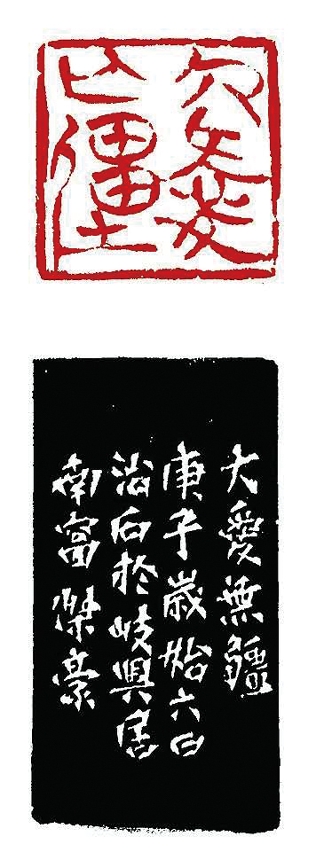 大愛
亡疆
大愛無疆
庚子歲始六日
治石於岐興居
南富傑豪